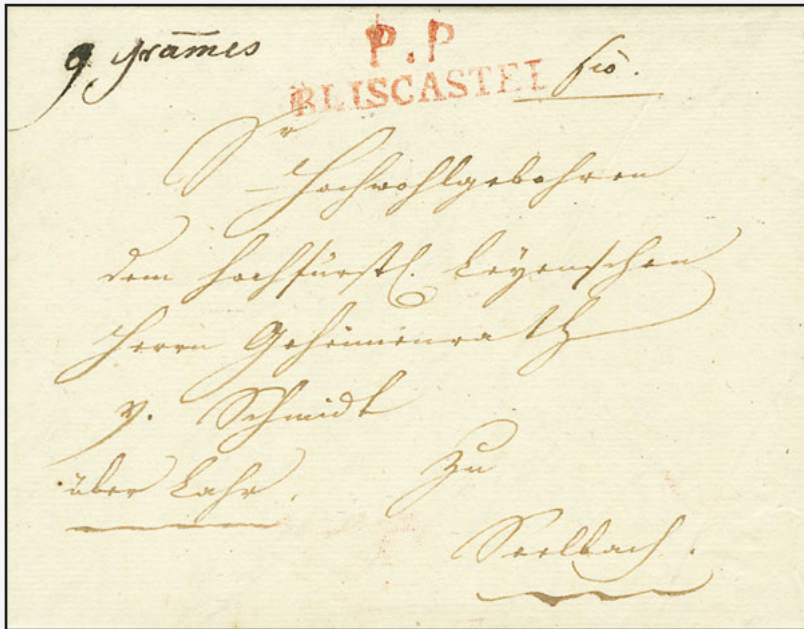 9 grāmes
P.P
BLISCASTEL
fco.
Sr
Hochwohlgebohren
dem hochfürstl. Leyenschen
Herrn Geheimenrath
v. Schmidt
über Lahr.
zu
Seelbach.